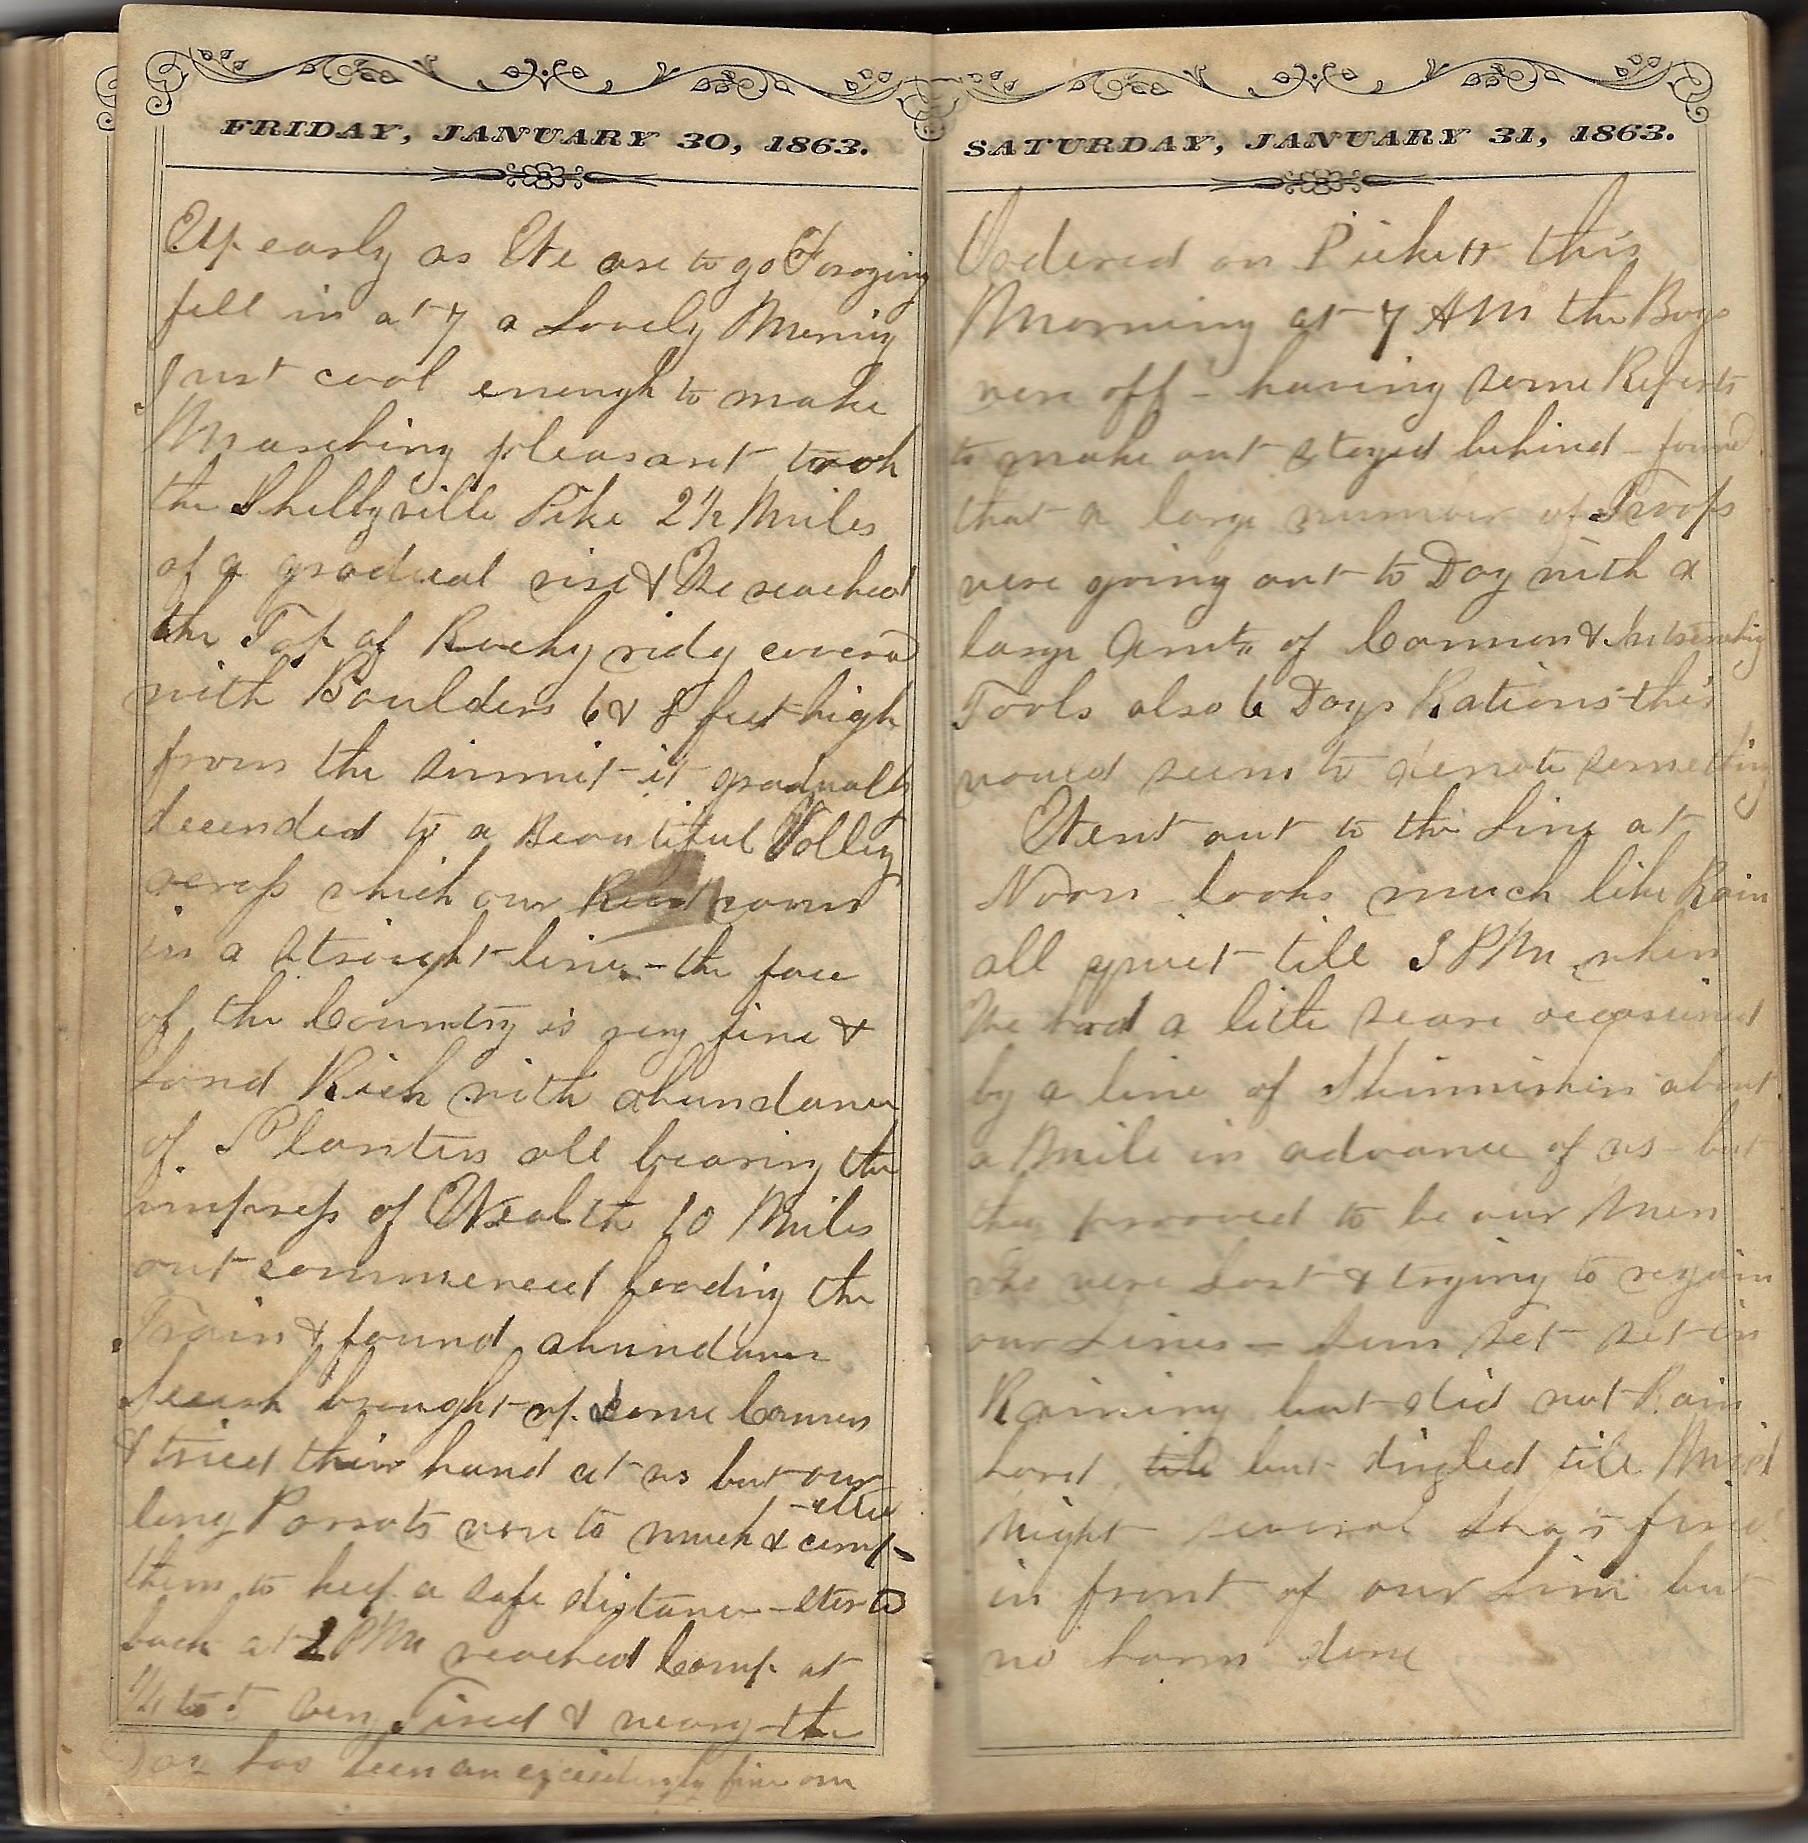 FRIDAY, JANUARY 30, 1863.
Up early as We are to go Foraging
fell in at 7 a Lovely Morning
Just cool enough to make
Marching pleasant took
the Shelbyville Pike 2 1/2 Miles
of a gradual rise & We reached
the Top of Rocky ridg covered
with Boulders 6 & 8 feet high
from the summit it gradually
decended to a Beautiful Valley
across which our Road
in a straight line - the face
of the Country is very fine &
Land Rich with abundance
of Planters all bearing the
impress of Wealth 10 Miles
out commenced loading the
Train & found abundance
Secesh brought up some Cannon
& tried their hand at us but our
long Parrots were to much & comp-
-elled
them to keep a safe distance - started
back at 2 PM reached Camp at
1/4 to 5 very Tired & weary - the
Day has been an exceedingly fine one
SATURDAY, JANUARY 31, 1863.
Ordered on Pickett this
Morning at 7 AM the Boys
were off - having some Reports
to make out stayed behind - found
that a large number of Troops
were going out to Day with a
large Amt. of Cannon & Intrenching
Tools also 6 Days Rations this
would seem to denote something
Went out to the Line at
Noon looks much like Rain
all quiet till 3 PM when
We had a little scare occasioned
by a line of Skirmishers about
a Mile in advance of us - but
they prooved to be our Men
who were Lost & trying to regain
our Lines - Sun set set in
Raining but did not Rain
hard till but drizled till Mid
night several Shots fired
in front of our Line but
no harm done